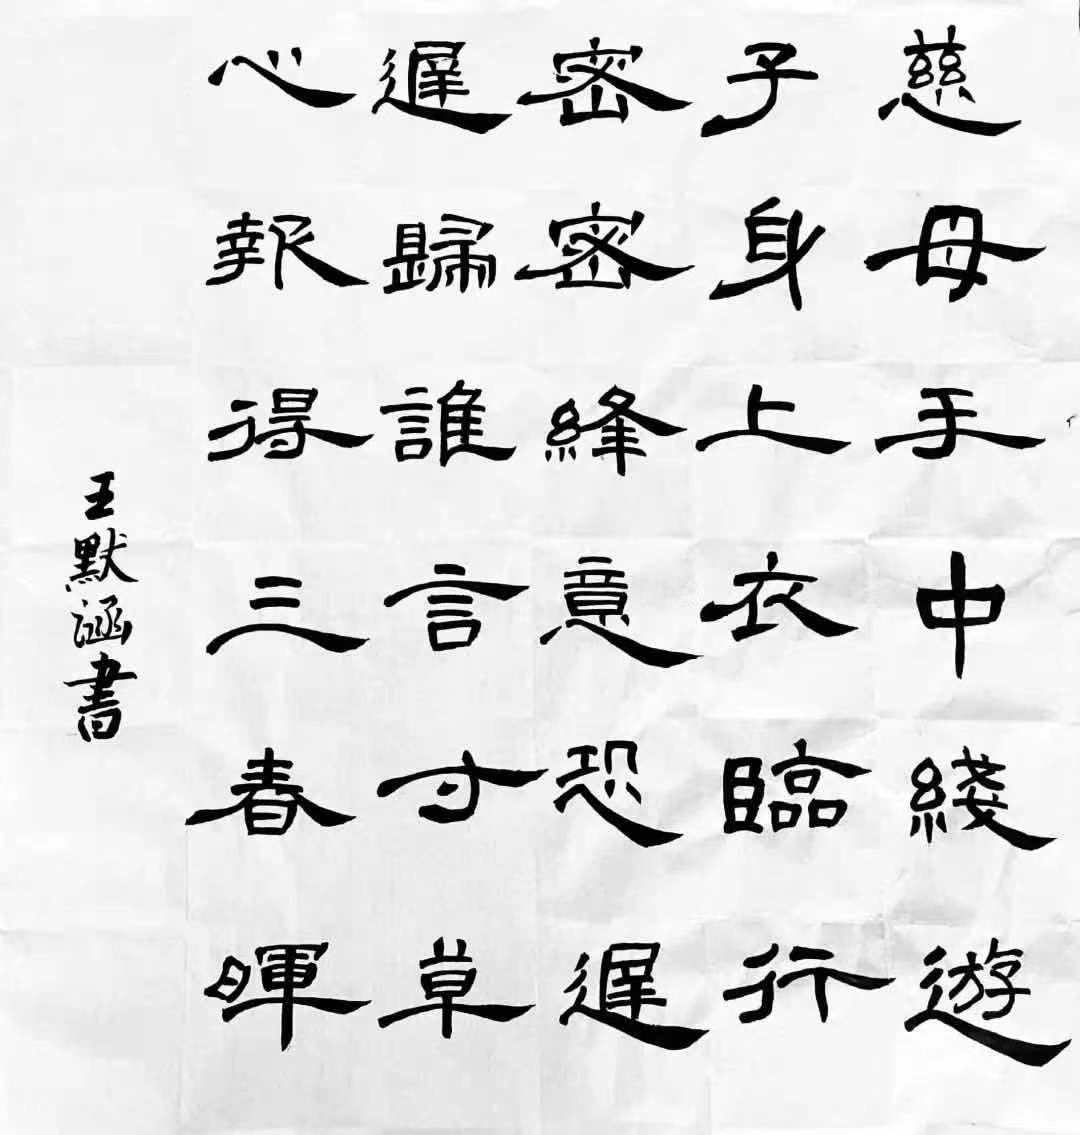 慈母手中綫遊
子身上衣臨行
密密綘意恐遲
遲歸誰言寸草
心報得三春暉
王默涵書